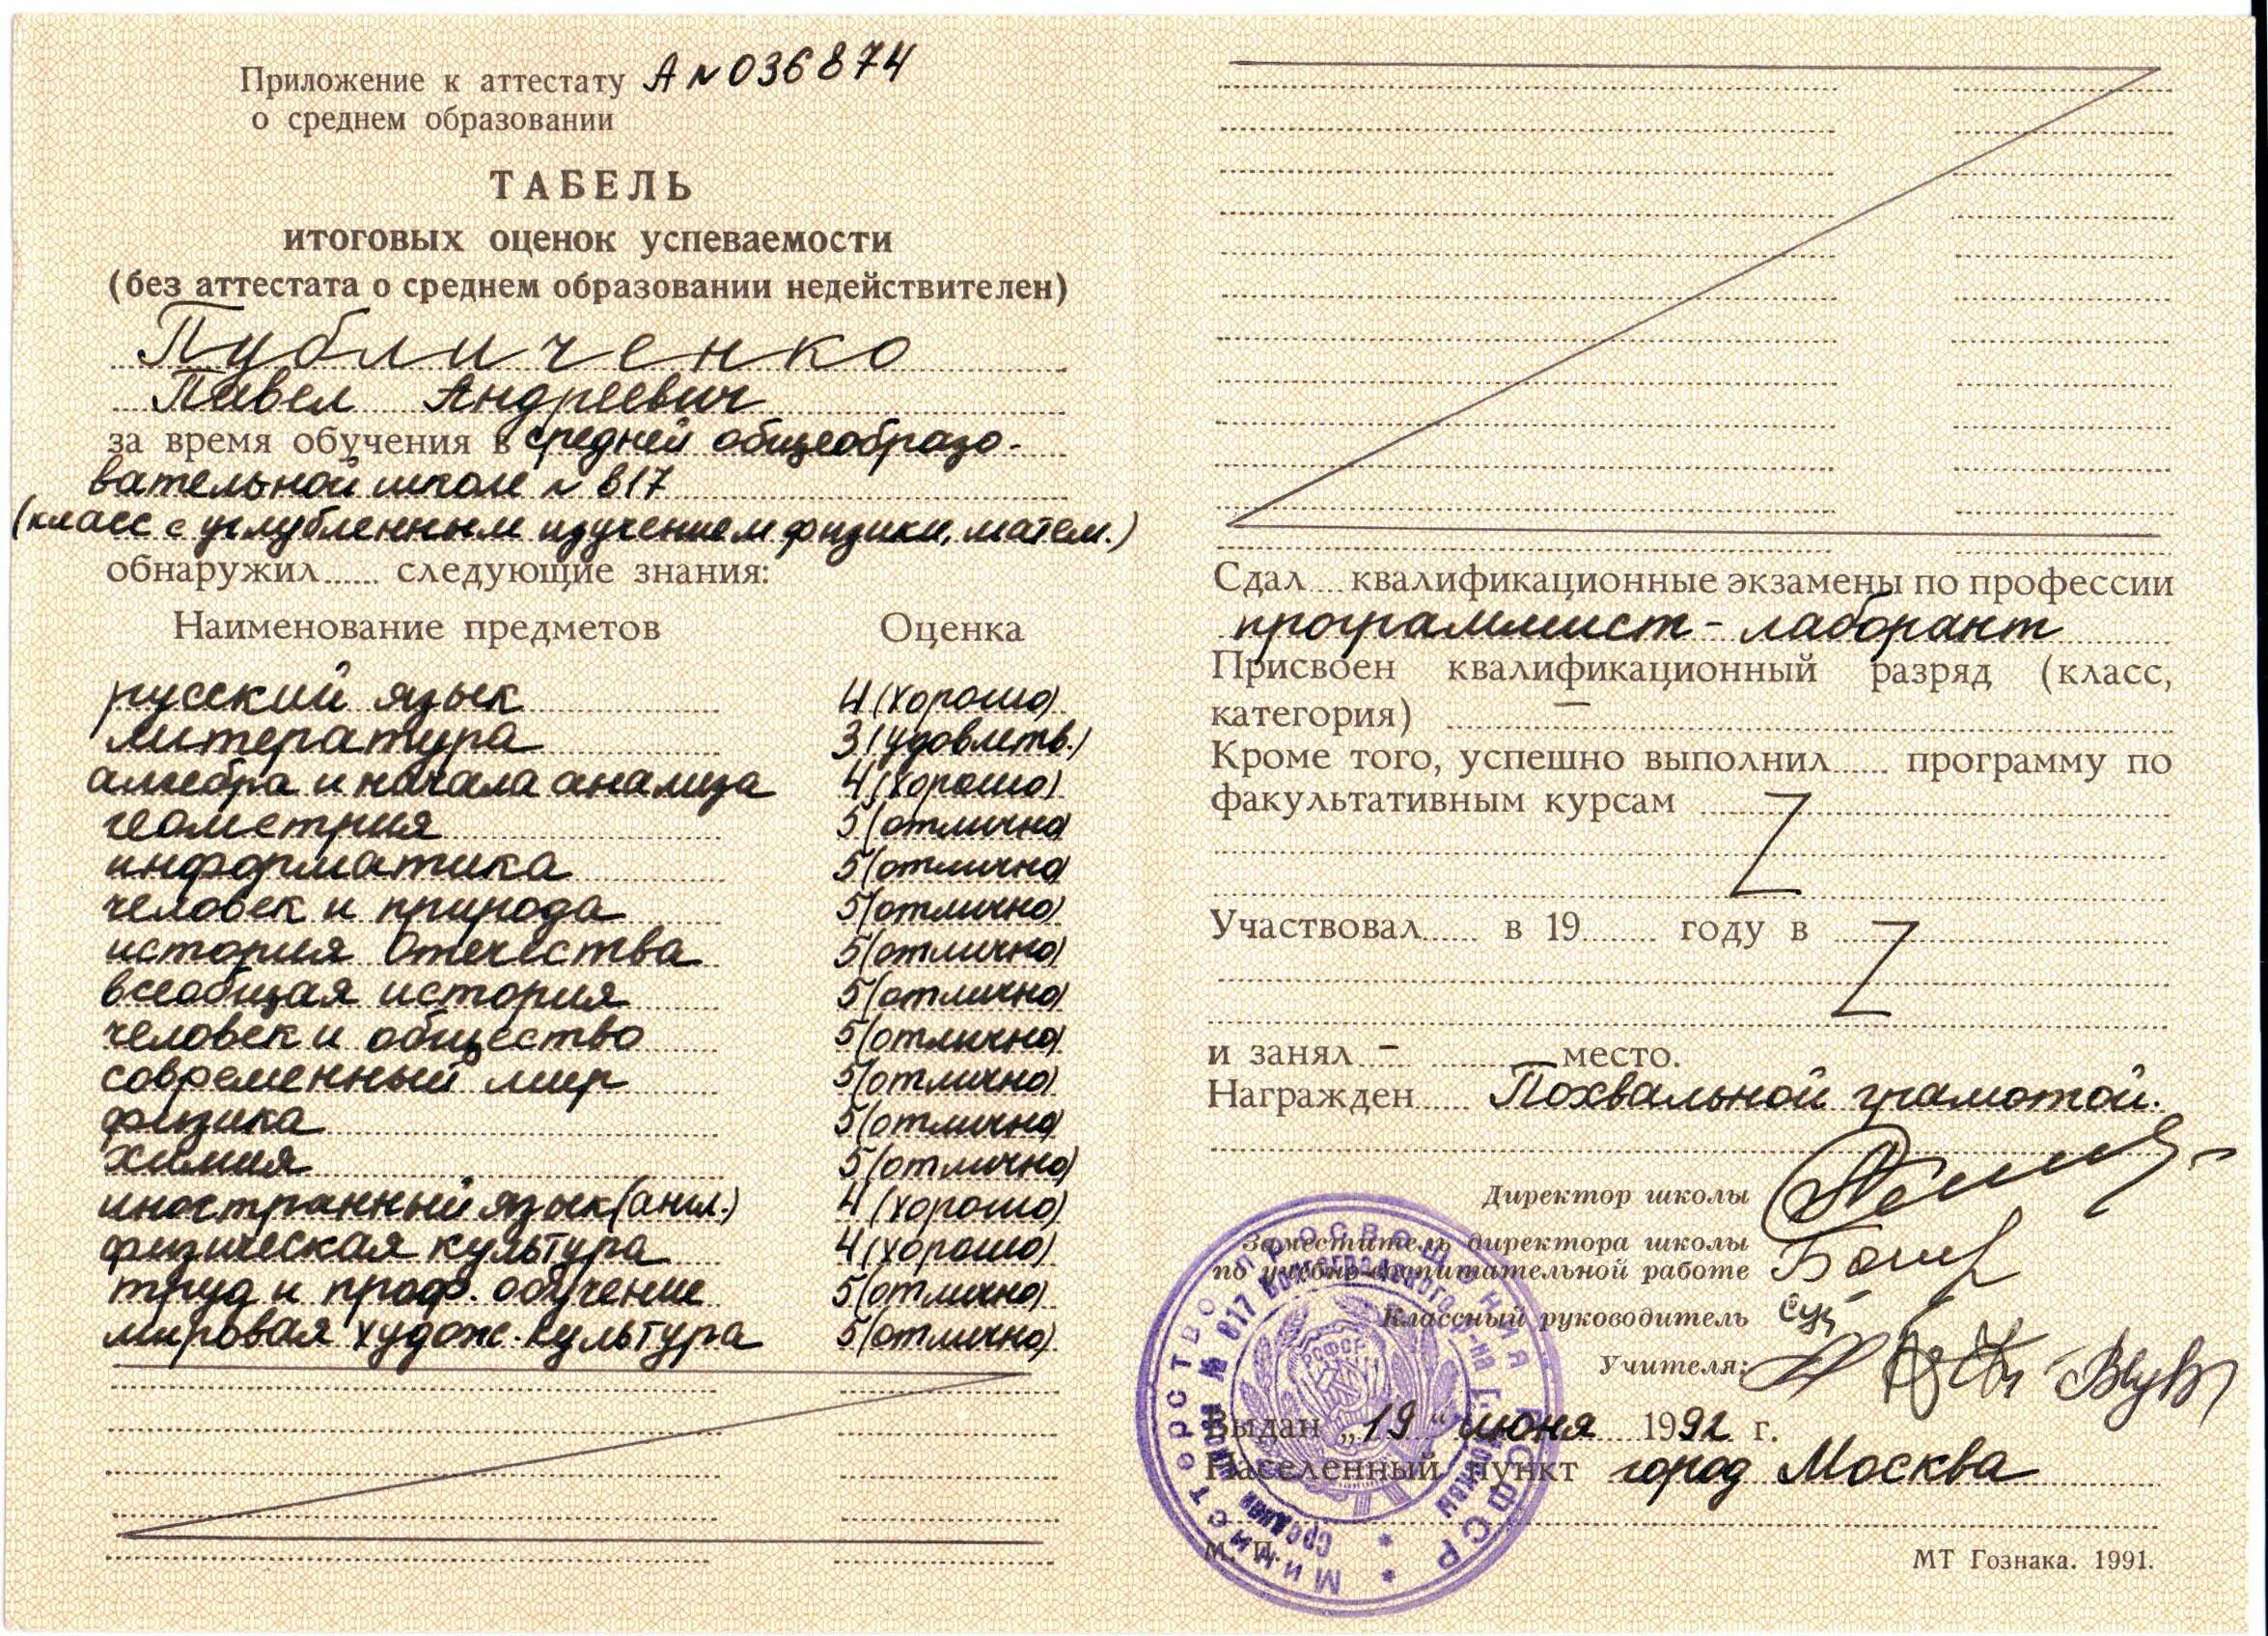 Приложение к аттестату А № 036874
о среднем образовании
ТАБЕЛЬ
итоговых оценок успеваемости
(без аттестата о среднем образовании недействителен)
Публиченко
Павел Андреевич
за время обучения в средней общеобразо-
вательной школе № 817
(класс с углубленным изучением физики, матем.)
обнаружил...... следующие знания:
Наименование предметов Оценка
русский язык 4 (хорошо)
литература 3 (удовлетв.)
алгебра и начала анализа 4 (хорошо)
геометрия 5 (отлично)
информатика 5 (отлично)
человек и природа 5 (отлично)
история Отечества 5 (отлично)
всеобщая история 5 (отлично)
человек и общество 5 (отлично)
современный мир 5 (отлично)
физика 5 (отлично)
химия 5 (отлично)
иностранный язык (англ.) 4 (хорошо)
физическая культура 4 (хорошо)
труд и проф. обучение 5 (отлично)
мировая художс. культура 5 (отлично)
Сдал.... квалификационные экзамены по профессии
программист - лаборант
Присвоен квалификационный разряд (класс,
категория) —
Кроме того, успешно выполнил...... программу по
факультативным курсам Z
Участвовал...... в 19....... году в Z
и занял - место.
Награжден...... Похвальной грамотой.
Директор школы
Заместитель директора школы
по учебно-воспитательной работе
Классный руководитель
Учителя:
Выдан „19“ июня 1992 г.
Населенный пункт город Москва
М. П.
Министерство просвещения РСФСР
Средняя школа № 817
РСФСР
МТ Гознака. 1991.